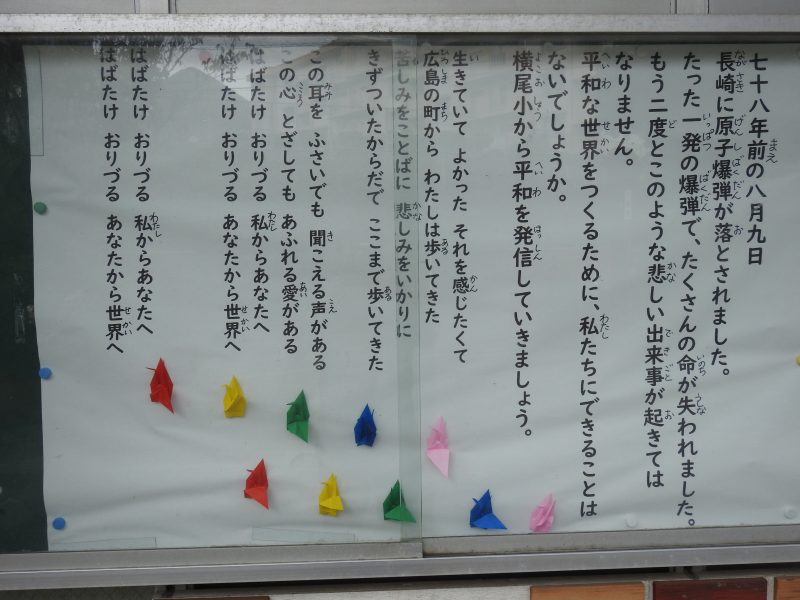 七十八年前の八月九日
長崎に原子爆弾が落とされました。
たった一発の爆弾で、たくさんの命が失われました。
もう二度とこのような悲しい出来事が起きては
なりません。
平和な世界をつくるために、私たちにできることは
ないでしょうか。
横尾小から平和を発信していきましょう。
生きていて よかった それを感じたくて
広島の町から わたしは歩いてきた
苦しみをことばに 悲しみをいかりに
きずついたからだで ここまで歩いてきた
この耳を ふさいでも 聞こえる声がある
この心 とざしても あふれる愛がある
はばたけ おりづる 私からあなたへ
はばたけ おりづる あなたから世界へ
はばたけ おりづる 私からあなたへ
はばたけ おりづる あなたから世界へ